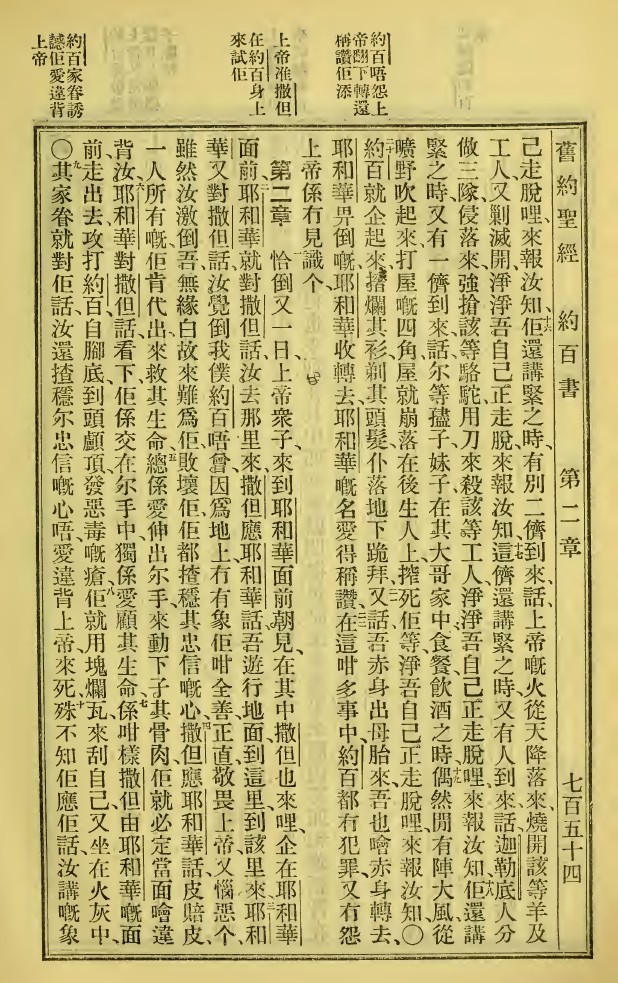 舊約聖經 約百書 第二章 七百五十四
約百唔怨上
帝翻下轉還
稱讚佢添
上帝准撒但
在約百身上
來試佢
約百家眷誘
讔佢愛違背
上帝
己走脫哩、來報汝知、十六佢還講緊之時、有別二儕到來、話、上帝嘅火從天降落來、燒開該等羊及
工人、又剿滅開淨淨、吾自己正走脫、來報汝知、十七這儕還講緊之時、又有人到來、話、迦勒底人分
做三隊、侵落來、強搶該等駱駝、用刀來殺該等工人淨淨、吾自己正走脫哩、來報汝知、十八佢還講
緊之時、又有一儕到來、話、尔等孻子妹子、在其大哥家中、食餐飲酒之時、十九偶然閒有陣大風、從
曠野吹起來、打屋嘅四角、屋就崩落、在後生人上、搾死佢等淨、吾自己正走脫哩、來報汝知、〇
二十約百就企起來、摺爛其衫、剃其頭髮、仆落地下跪拜、二一又話、吾赤身出母胎來、吾也噲赤身轉去、
耶和華畀倒嘅、耶和華收轉去、耶和華嘅名愛得稱讚、二二在這咁多事中、約百都冇犯罪、又冇怨
上帝係冇見識个、
第二章 恰倒又一日、上帝衆子、來到耶和華面前朝見、在其中撒但也來哩、企在耶和華
面前、二耶和華就對撒但話、汝去那里來、撒但應耶和華話、吾遊行地面、到這里到該里來、三耶和
華又對撒但話、汝覺倒我僕約百唔曾、因爲地上冇有象佢咁全善、正直、敬畏上帝、又惱惡个、
雖然汝激倒吾、無緣白故來難爲佢、敗壞佢、佢都揸穩其忠信嘅心、四撒但應耶和華話、皮賠皮、
一人所有嘅、佢肯代出來救其生命、五總係愛伸出尔手來、動下子其骨肉、佢就必定當面噲違
背汝、六耶和華對撒但話、看下、佢係交在尔手中、獨係愛顧其生命、七係咁樣撒但由耶和華嘅面
前走出去、攻打約百、自腳底到頭顱頂、發惡毒嘅瘡、八佢就用塊爛瓦來刮自己、又坐在火灰中、
〇九其家眷就對佢話、汝還揸穩尔忠信嘅心唔、愛違背上帝來死、十殊不知佢應佢話、汝講嘅象